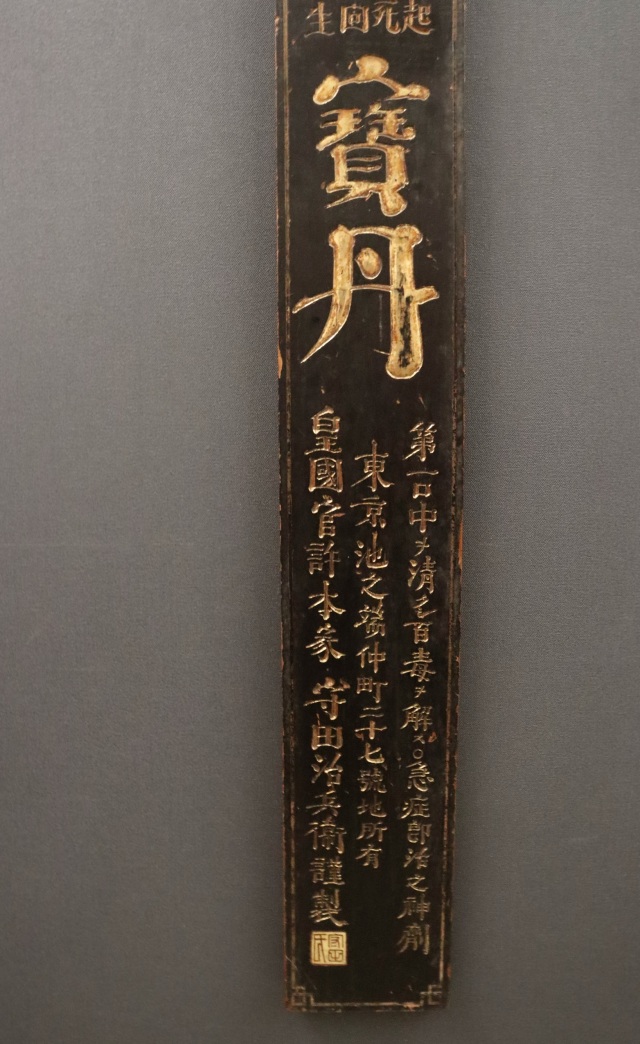 起死回生
寶丹
第一口中ヲ清シ百毒ヲ解ス○急症即治之神劑
東京池之端仲町二十七號地所有
皇國官許本家 守田治兵衞謹製